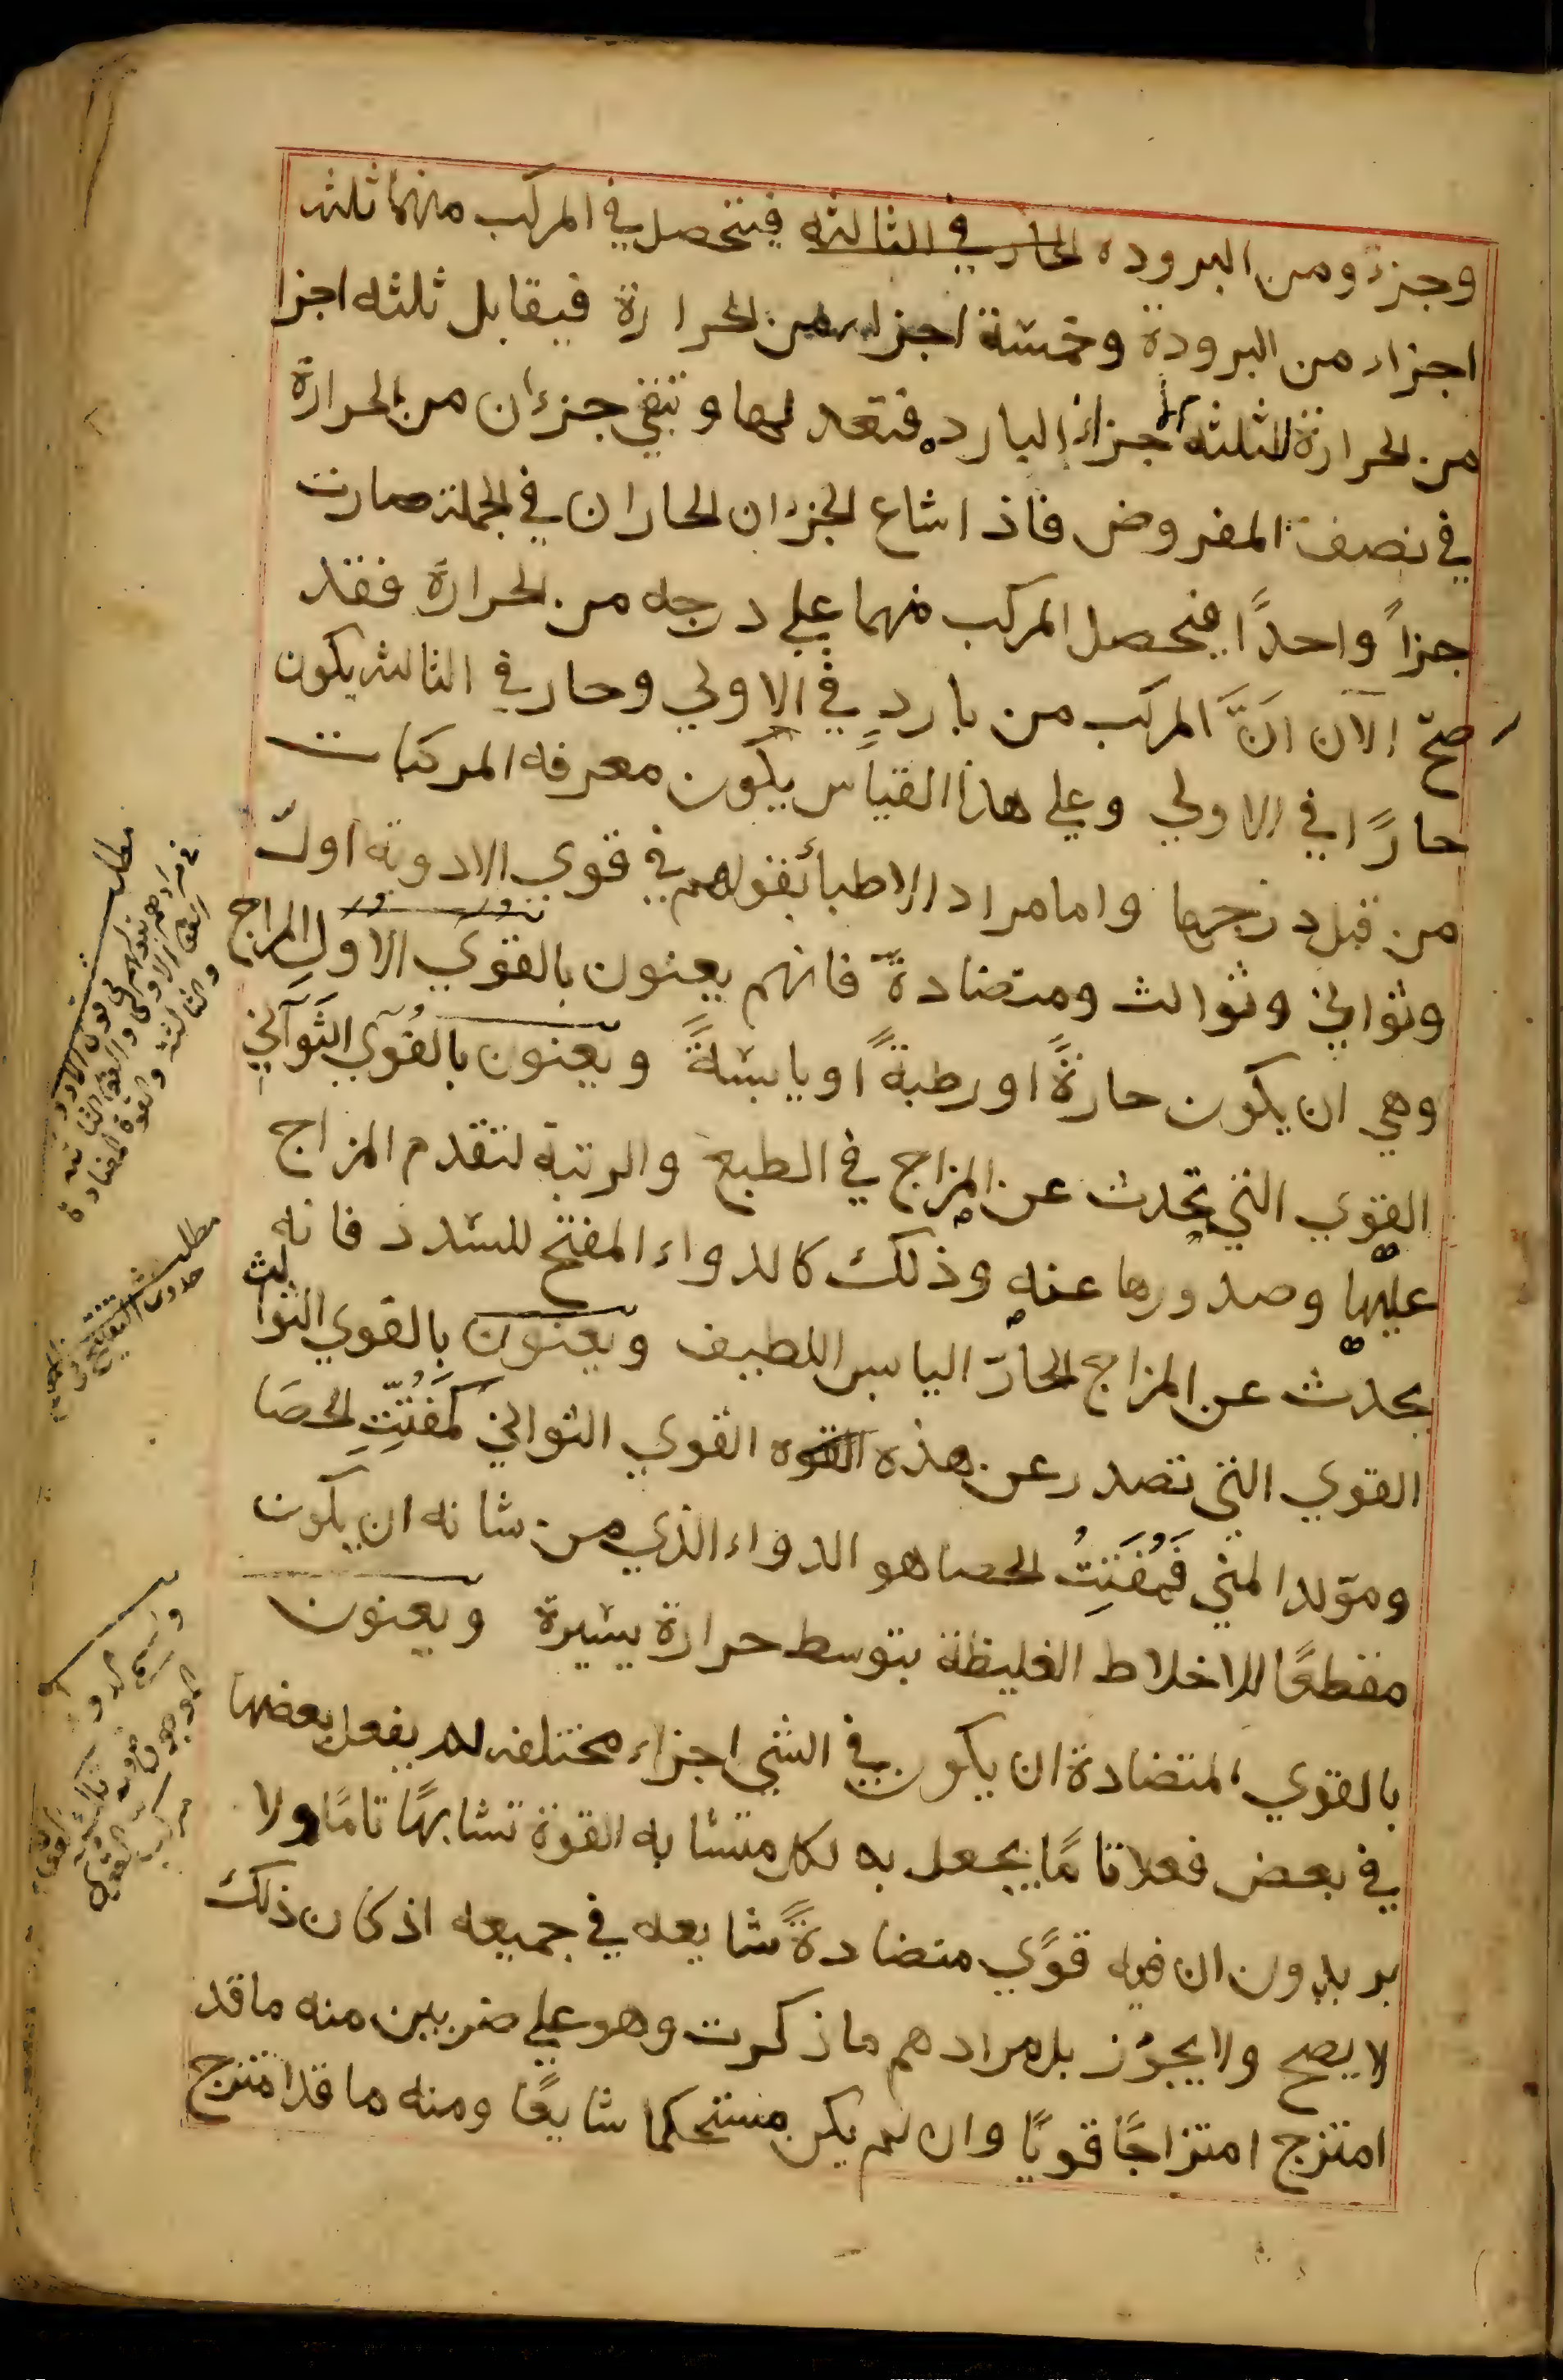 وجزء ومن البروده الحار في الثالثه فيتحصل في المركب منهما ثلثه
اجزاء من البرودة وخمسة اجزاء من الحرارة فيقابل ثلثه اجزا
من الحرارة للثلثه اجزاء البارده فتعدلها وتبقي جزءان من الحرارة
في نصف المفروض فاذا شاع الجزءان الحاران في الجملة صارت
جزاً واحدًا فيحصل المركب منهما علي درجه من الحرارة فقد
صحّ الآن انَّ المركب من باردٍ في الاولي وحار في الثالثه يكون
حارًا في الاولي وعلي هذا القياس يكون معرفه المركبات
من قبل درجها واما مراد الاطبا بقولهم في قوي الادوية اول
وثواني وثوالث ومتضادة فانهم يعنون بالقوي الاول المزاج
وهي ان يكون حارةً او رطبةً او يابسةً ويعنون بالقوي الثواني
القوي التي تحدث عن المزاج في الطبع والرتبة لتقدم المزاج
عليها وصدورها عنه وذلك كالدواء المفتح للسدد فانه
يحدث عن المزاج الحارّ اليابس اللطيف ويعنون بالقوي الثوالث
القوي التي تصدر عن هذه القوه القوي الثواني كمفتت الحصا
ومولد المني فمفتت الحصا هو الدواء الذي من شانه ان يكون
مقطعًا للاخلاط الغليظة بتوسط حرارة يسيرة ويعنون
بالقوي المتضادة ان يكون في الشي اجزاء مختلفه لم يفعل بعضها
في بعض فعلا تامًا يجعل به لكل متشابه القوة تشابهًا تامًا ولا
يريدون ان فيه قوًي متضادةً شايعه في جميعه اذ كان ذلك
لا يصح ولا يجوز بل مرادهم ما ذكرت وهو علي ضربين منه ما قد
امتزج امتزاجًا قويًا وان لم يكن مستحكما شايعًا ومنه ما قد امتزج
مطلب
في مرادهم بقولهم في قوي الادوية
القوة الاولي والقوة الثانية
والثالثة والقوة المضادة
مطلب